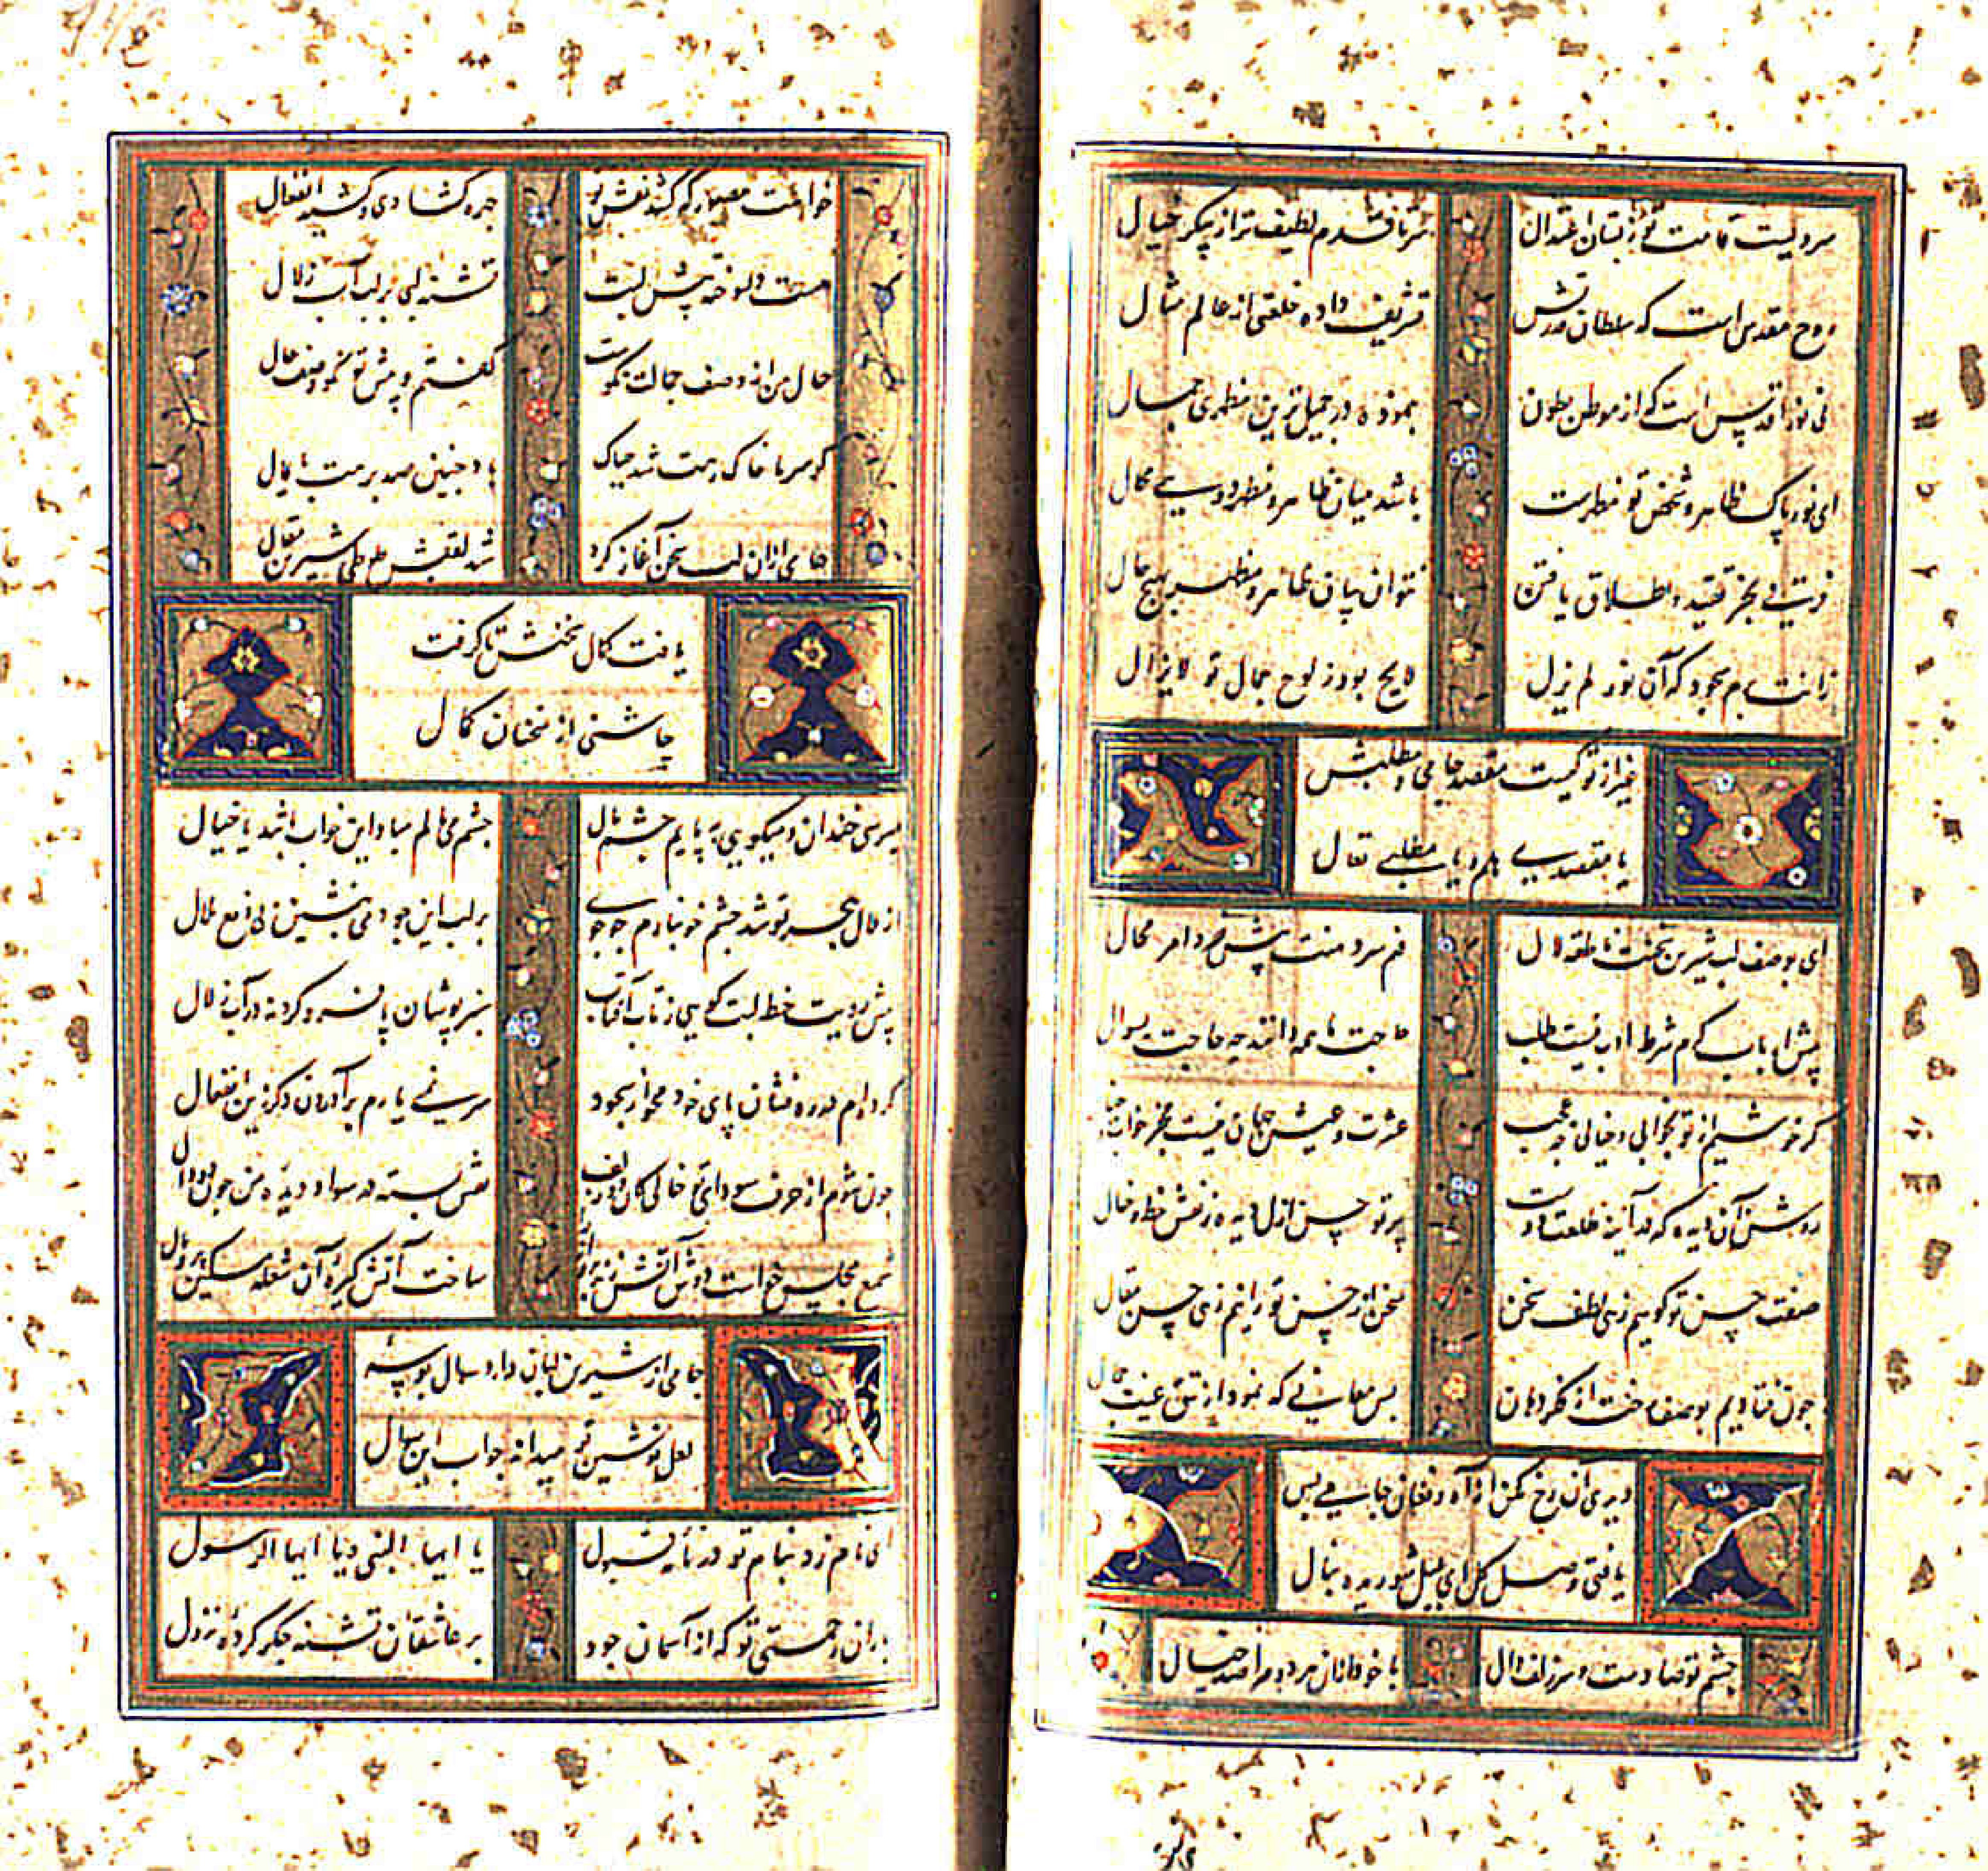 سرویست قامت تو ز بستان اعتدال سر تا قدم لطیف تر از پیکر خیال
روح مقدس است که سلطان قدس تشریف داده خلعتی از عالم مثال
نی نور اقدس است که از موطن بطون بنموده در جمیل ترین مظهری جمال
ای نور پاک ظاهر و شخص تو مظهرست باشد میان ظاهر و مظهر دویی محال
فرقیست نی بجز تقیید و اطلاق یافتن نتوان میان ظاهر و مظهر بهیچ حال
زانت برم سجود که آن نور لم یزل لایح بود ز لوح جمال تو لایزال
غیر از تو نیست مقصد جامی و مطلبش
یا مقصدی هلم و یا مطلبی تعال
ای بوصف لب شیرین سخنت ناطقه لال فهم سر دهنت پیش خرد امر محال
پیش ارباب کرم شرط ادب نیست طلب حاجت ما همه دانند چه حاجت بسوال
گر خوشیم از تو بخوابی و خیالی چه عجب عشرت و عیش جهان نیست بجز خواب و خیال
روشن آن دیده که در آینه طلعت دوست پرتو حسن ازل دیده ز نقش خط و خال
صفت حسن تو گوییم زهی لطف سخن سخن از حسن تو رانیم زهی حسن مقال
چون فتادیم بوصف رخت از فکر دهان بس معانی که نمود از تتق غیب جمال
دیدی آن رخ مکن از آه و فغان جامی بس
یافتی وصل گل ای بلبل شوریده منال
چشم تو صادست و سر زلف دال با خود ازان هر دو مرا صد خیال
خواست مصور که کشد نقش تو چهره گشادی و کشید انفعال
هست دل سوخته پیش لبت تشنه لبی بر لب آب زلال
حال من از وصف جمالت نکوست گفتم و پیش تو نکو وصف حال
گر سر ما خاک رهت شد چه باک باد چنین صد بر هت پایمال
جامی ازان لب سخن آغاز کرد شد لقبش طوطی شیرین مقال
یافت کمال سخنش تا گرفت
چاشنی از سخنان کمال
میرسی خندان و میگویی به پایم چشم مال چشم می مالم مبادا این خواب باشد یا خیال
از ملال هجر تو شد چشم خونبارم جوی بر لب این جو دمی بنشین پی رفع ملال
پیش رویت خط لبت گویی ز تاب آفتاب سبزپوشان پا فرو کردند در آب زلال
کرده ام در ره نشان پای خود محو از سجود سر نمی یارم برآوردن دگر زین انفعال
چون شوم از حرف سودای تو خالی کان دو زلف نقش بسته در سواد دیده من چون دو دال
شمع مجلس خواست دوش آتش زند پروانه را ساخت آتش گیره آن شعله مسکین پر و بال
جامی از شیرین لبان دارد سوال بوسه
لعل نوشین تو میداند جواب این سوال
ای نام زد بنام تو در نامه قبول یا ایها النبی و یا ایها الرسول
باران رحمتی تو که از آسمان جود بر عاشقان تشنه جگر کرده نزول